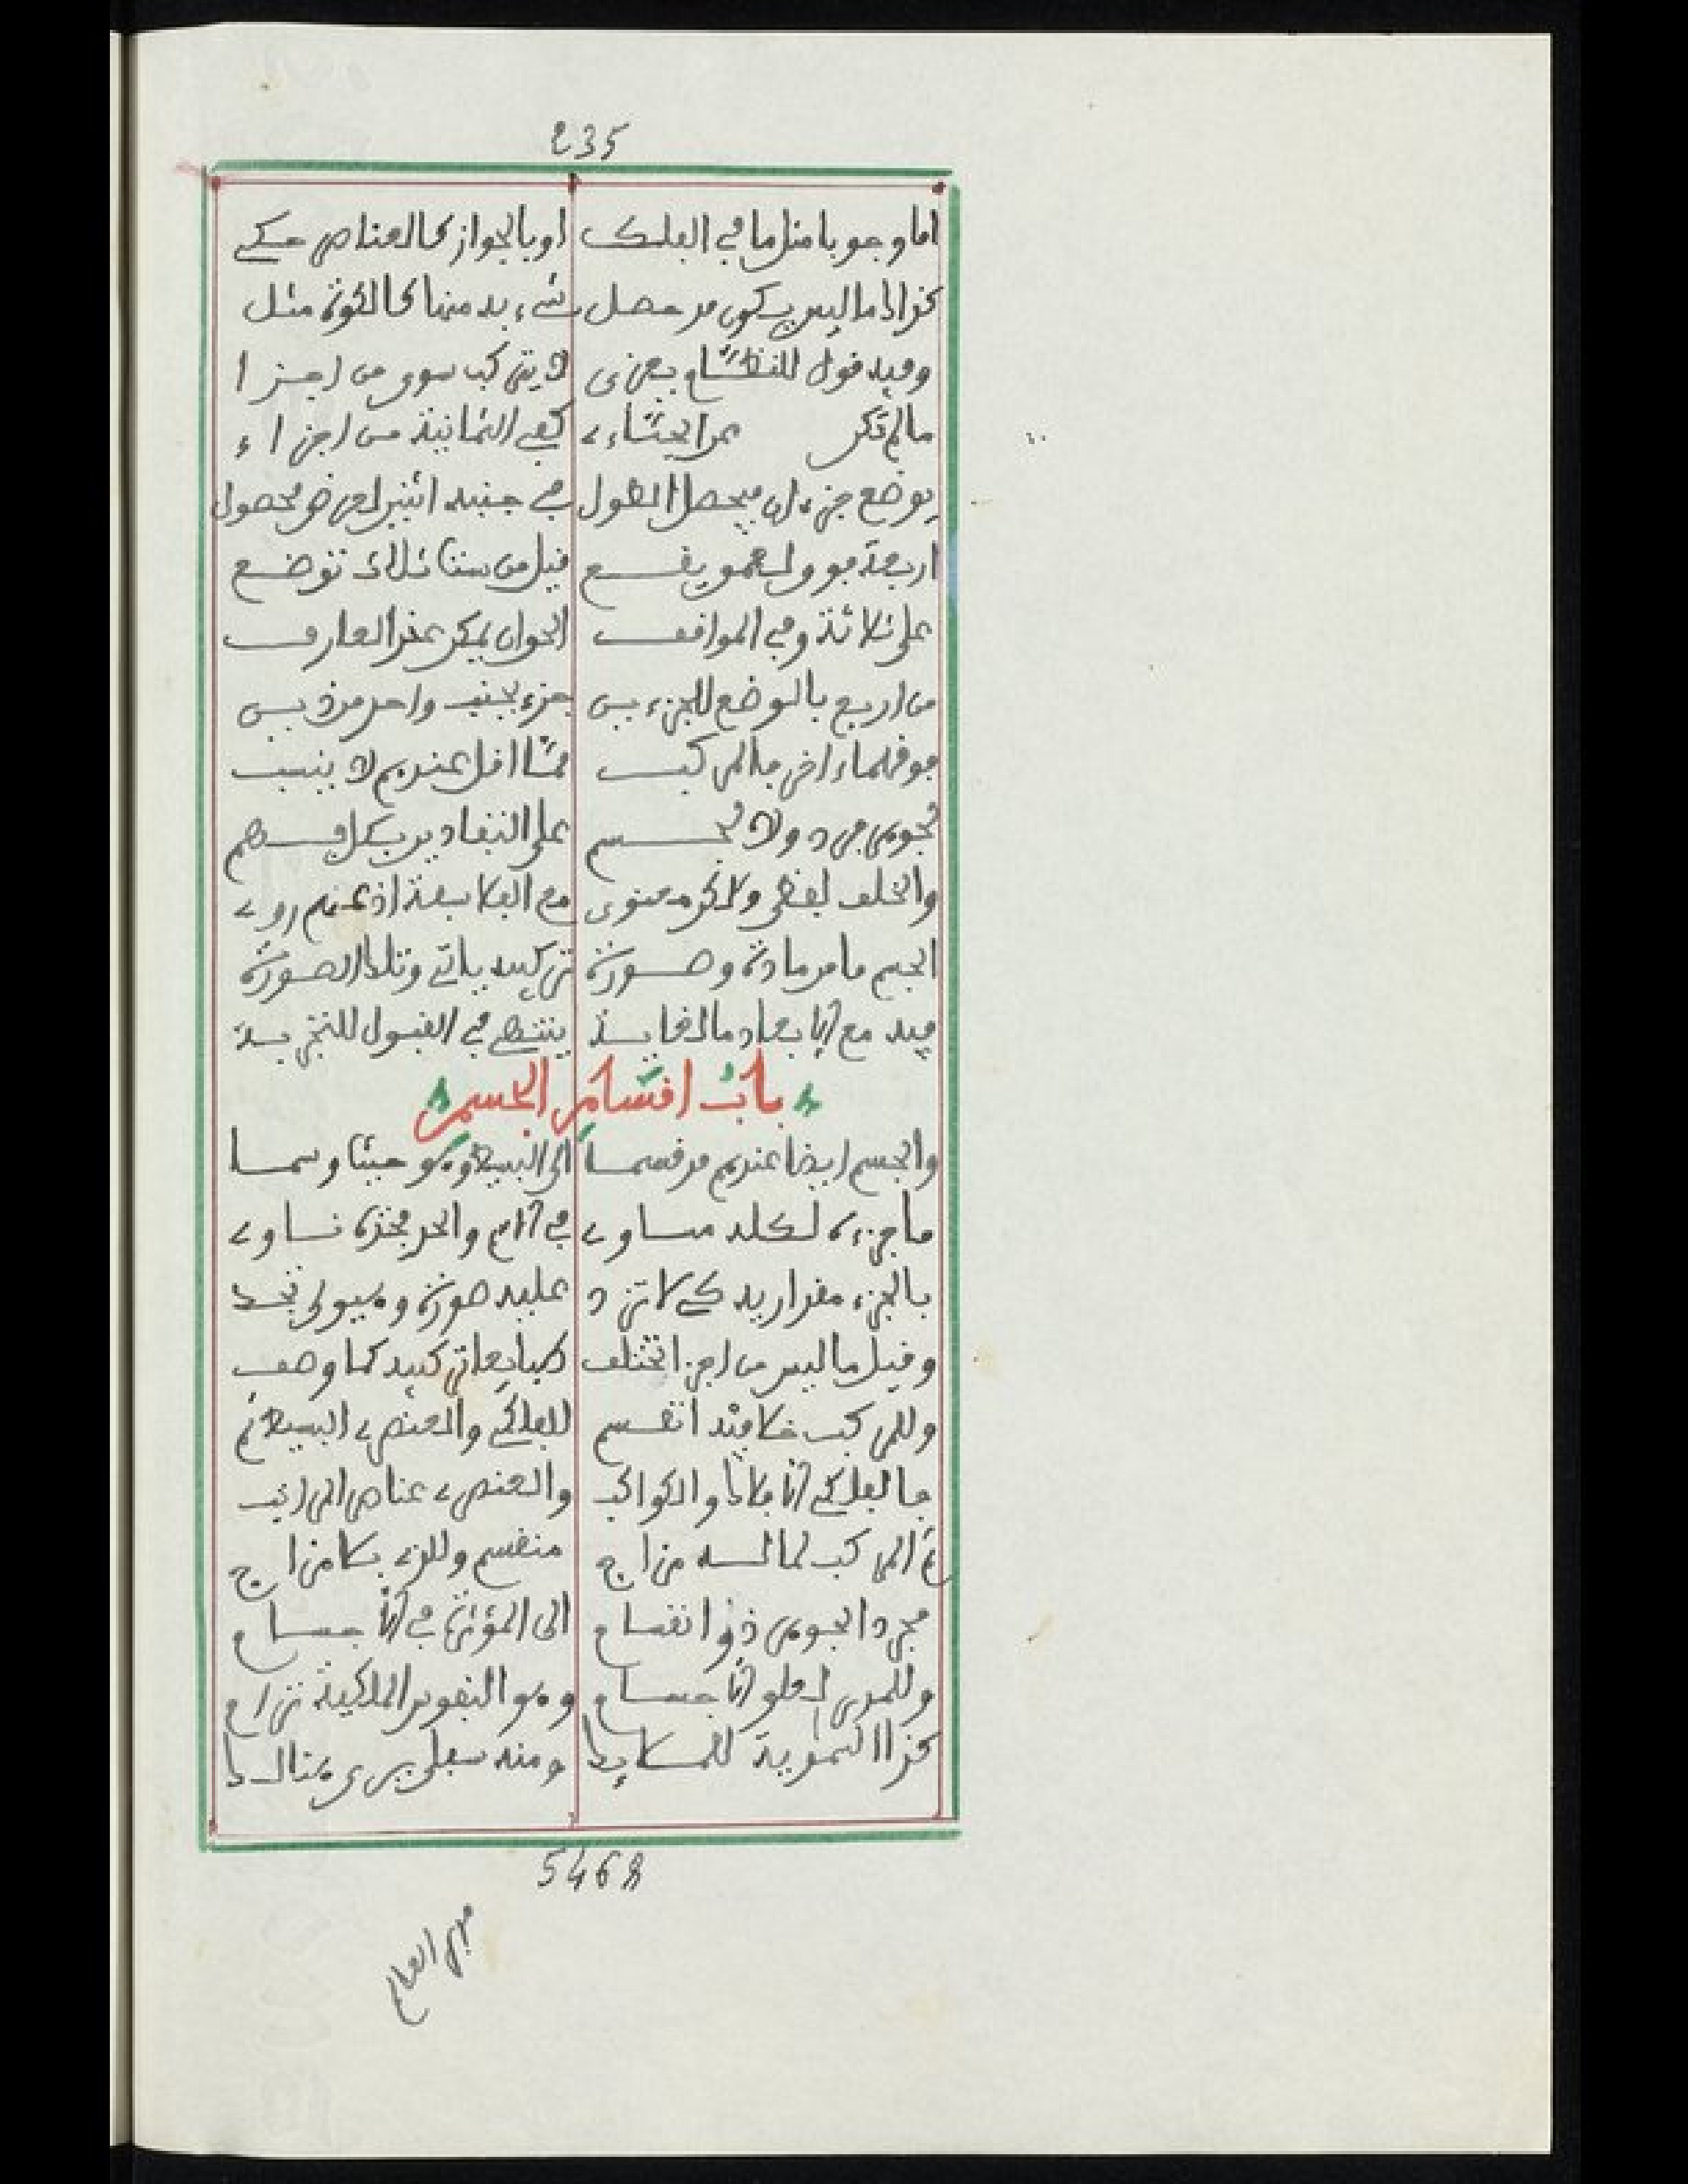 235
اما وجوبا مثل ما في الفلك او بالجواز كالعناصر حكي
كذاك ما ليس يكون قد حصل شيء به منها كالكوة مثل
وفيه قول للنظام يعزى لا يتركب سوى من اجزا
ما لم تكن عدا الجبائي كفى الثمانية من اجزاء
يوضع جزءان فيحصل الطول في جنبه اثنين لعرض محصول
اربعة فوق لعمق يقع قيل من ست ثلاث توضع
على ثلاثة وفي المواقف الجواب يمكن عند العارف
من اربع بالوضع للجزءين جزء بجنب واحد من ذين
فوقهما اخر فالمركب مما اقل عندهم لا ينسب
لجوهر فرد ولا لجسم على التقادير بكل قسم
والخلف لفظي ولاكن معنوي مع الفلاسفة اذ عنهم روي
الجسم ما من مادة وصورة تركيبه ياتي وتلك الصورة
فيه مع الابعاد ما لغاية ينتهي في القبول للتجزية
باب اقسام الجسم
والجسم ايضا عندهم قد قسما الى البسيط وهو حيثما وسما
ما جزءه لكله مساوي في الاسم والحد فخذه تساوي
بالجزء مقداريه كي لا ترد عليه صورة وهيولى تجد
وقيل ما ليس من اجزا تختلف طبايعا تركيبه كما وصف
وللمركب خلافه انقسم للفلكي والعنصري البسيط ثم
فالفلكي الافلاك والكواكب والعنصري عناصر المراكب
ثم المركب لما له مزاج منقسم وللذي بلا مزاج
مجرد الجوهر ذو انقسام الى المؤثر في الاجسام
وللمدبر لعلو الاجسام وهو النفوس الفلكية ترام
كذا السموية للملايك ومنه سفلي يرى هنالك
5468
مبري العالم